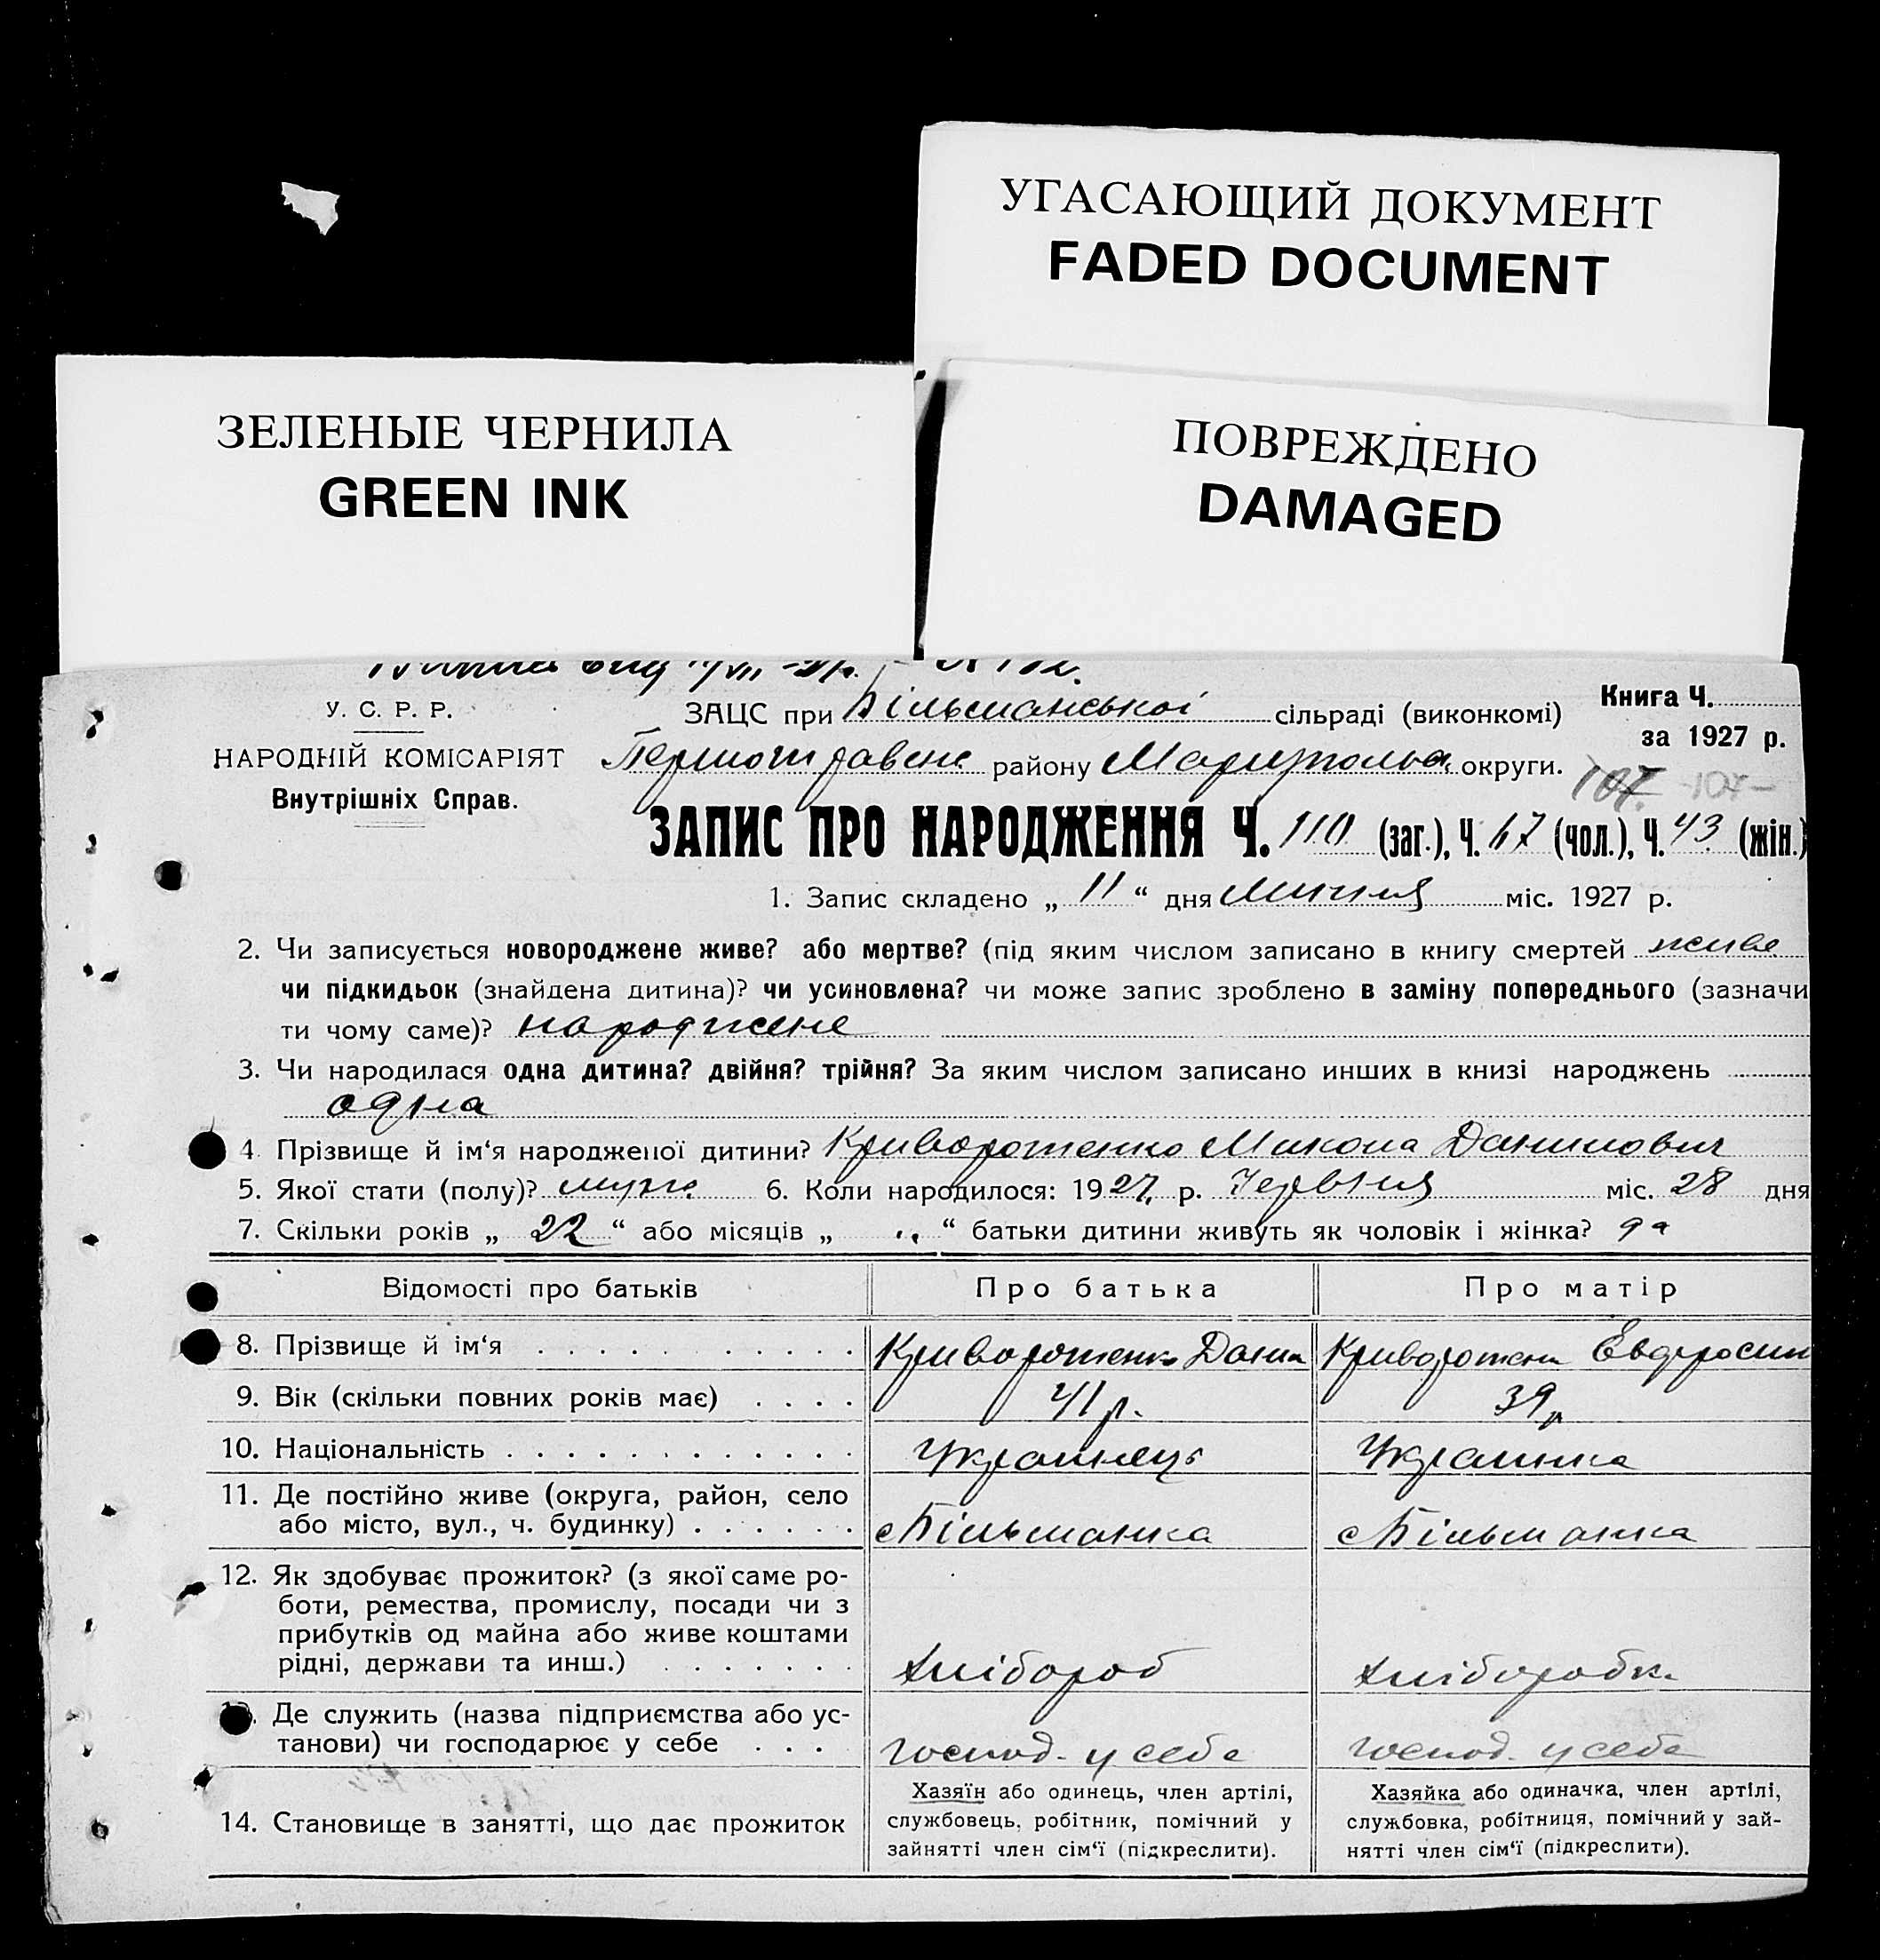 УГАСАЮЩИЙ ДОКУМЕНТ
FADED DOCUMENT
ЗЕЛЕНЫЕ ЧЕРНИЛА
GREEN INK
ПОВРЕЖДЕНО
DAMAGED
У. С. Р. Р.
НАРОДНІЙ КОМІСАРІЯТ
Внутрішніх Справ.
ЗАЦС при Більманської сільраді (виконкомі)
Першотравене району Маріупольс. округи.
Книга Ч.
за 1927 р.
107. 107-
ЗАПИС ПРО НАРОДЖЕННЯ Ч. 110 (заг.), Ч. 67 (чол.), Ч. 43 (жін.)
1. Запис складено „ 11 “ дня Липня міс. 1927 р.
2. Чи записується новороджене живе? або мертве? (під яким числом записано в книгу смертей живе
чи підкидьок (знайдена дитина)? чи усиновлена? чи може запис зроблено в заміну попереднього (зазначи
ти чому саме)? народжене
3. Чи народилася одна дитина? двійня? трійня? За яким числом записано инших в книзі народжень
одна
4. Прізвище й ім‘я народженої дитини? Криворотенко Микола Данилович
5. Якої стати (полу)? муж. 6. Коли народилося: 1927. р. Червня міс. 28 дня
7. Скільки років „ 22 “ або місяців „ “ батьки дитини живуть як чоловік і жінка? да
Відомості про батьків Про батька Про матір
8. Прізвище й ім‘я Криворотенко Данил Криворотенк Евдросин
9. Вік (скільки повних років має) 41 р. 39 р
10. Національність Украинець Украинка
11. Де постійно живе (округа, район, село
або місто, вул., ч. будинку) с Більманка с Більманка
12. Як здобуває прожиток? (з якої саме ро-
боти, ремества, промислу, посади чи з
прибутків од майна або живе коштами
рідні, держави та инш.) хлібороб хліборобк.
Де служить (назва підприємства або ус-
танови) чи господарює у себе господ. у себе господ. у себе
14. Становище в занятті, що дає прожиток
Хазяїн або одинець, член артілі,
службовець, робітник, помічний у
зайнятті член сім‘ї (підкреслити).
Хазяйка або одиначка, член артілі,
службовка, робітниця, помічний у зай-
нятті член сім‘ї (підкреслити).